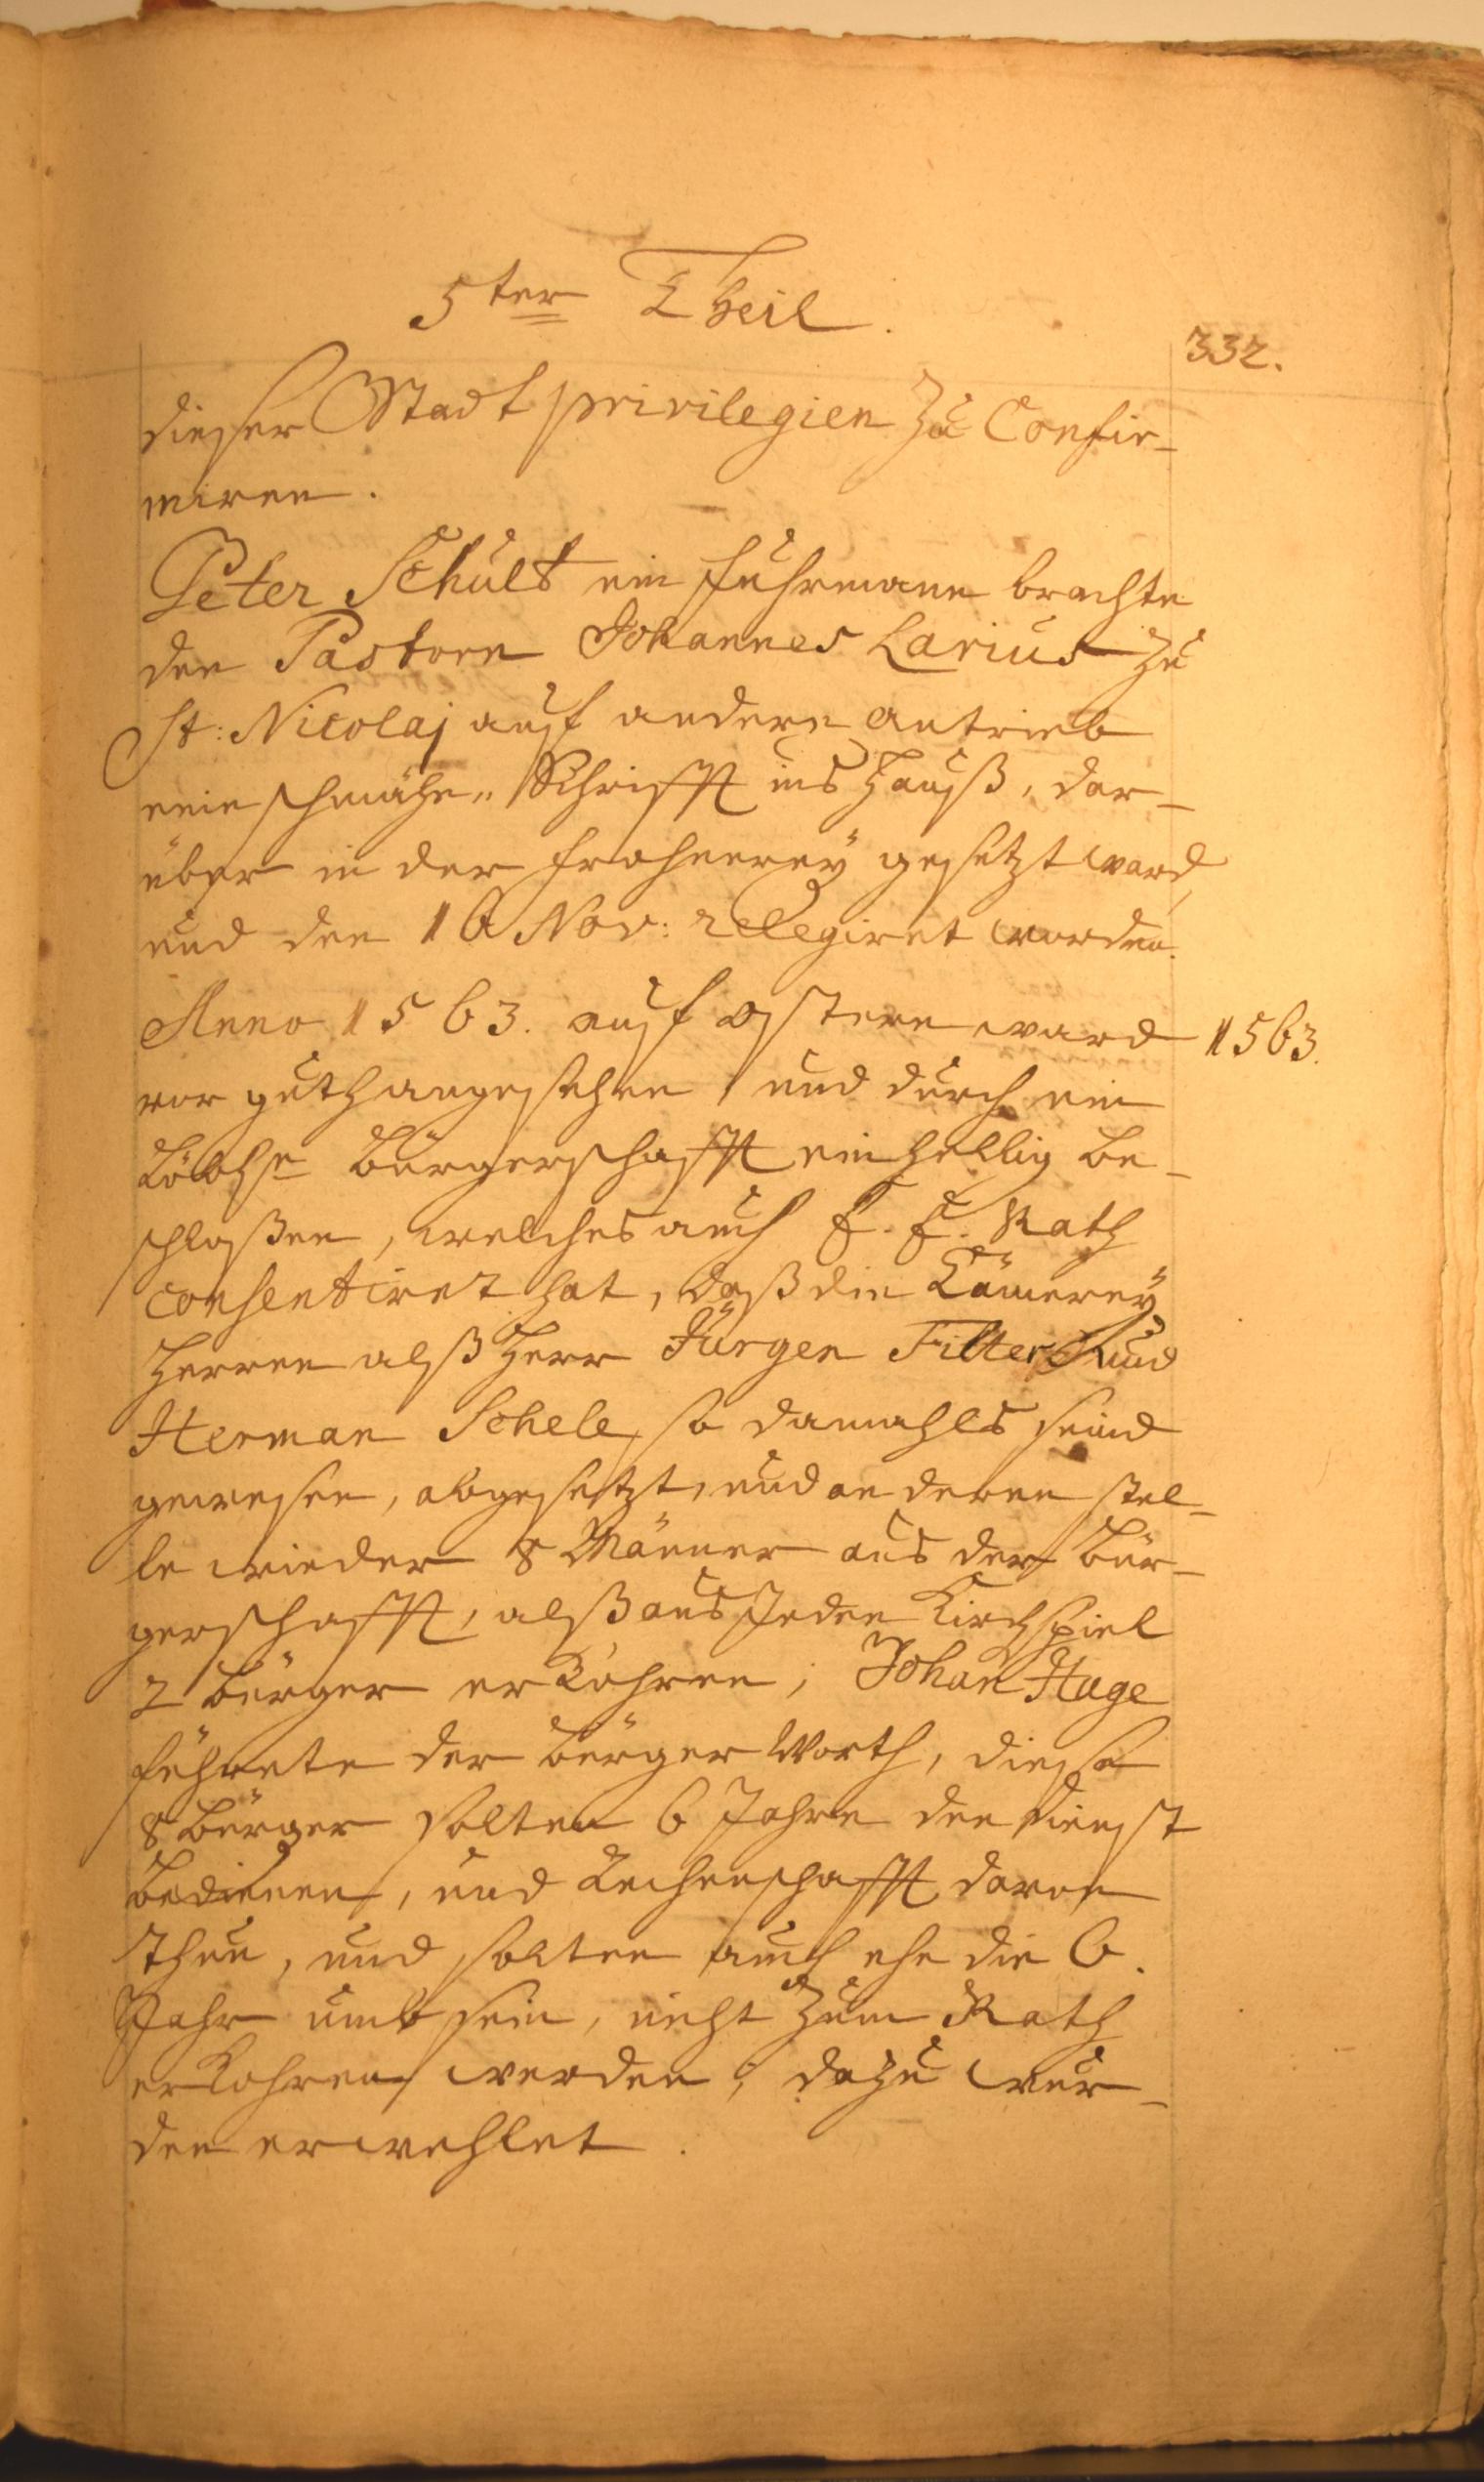 5ter Theil.
332.
dieser Stadt privilegien zu Confir-
miren.
Peter Schult ein fuhrmann brachte
den Pastorn Johannes Larius zu
St: Nicolaj auf andern antrieb
eine schmähe„ Schrifft ins Hauß, dar-
über in der frohnerey gesetzt ward,
und den 16 Nov: relegiret worden.
Anno 1563. auf ostern ward
1563.
vor guth angesehen, und durch ein
Löblse Bürgerschafft einhellig be-
schloßen, welches auch E. E. Rath
consentiret hat, daß die Cämerey
Herren alß Herr Jürgen Filter und
Herman Schele, so damahls seind
gewesen, abgesetzt, und an deren stel-
le wieder 8 Männer aus der Bür-
gerschafft, alß aus Jeden Kirchspiel
2 bürger erkohren, Johan Hage
führete der bürger Worth, diese
8 bürger solten 6 Jahre den dienst
bedienen, und Rechenschafft davon
thun, und solten auch ehe die 6.
Jahr umb sein, nicht zum Rath
erkohren werden, dazu wur-
den erwehlet.